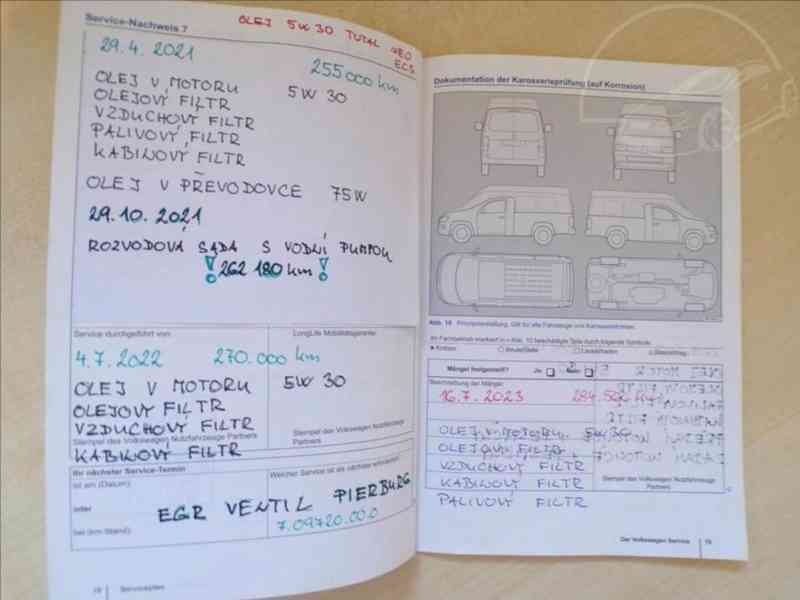 Service-Nachweis 7
OLEJ 5W30 TOTAL NEO
ECS
29.4. 2021
255000 km
OLEJ V MOTORU 5W 30
OLEJOVÝ FILTR
VZDUCHOVÝ FILTR
PALIVOVÝ FILTR
KABINOVÝ FILTR
OLEJ V PŘEVODOVCE 75W
29.10.2021
ROZVODOVÁ SADA S VODNÍ PUMPOU
! 262 180 km !
Service durchgeführt von:
LongLife Mobilitätsgarantie:
4.7. 2022 270.000 km
OLEJ V MOTORU 5W 30
OLEJOVÝ FILTR
VZDUCHOVÝ FILTR
Stempel des Volkswagen Nutzfahrzeuge Partners
Stempel des Volkswagen Nutzfahrzeuge
Partners
KABINOVÝ FILTR
Ihr nächster Service-Termin
ist am (Datum):
Welcher Service ist als nächster erforderlich?
oder
EGR VENTIL PIERBURG
7.09720.00.0
bei (km-Stand):
18 Serviceplan
Dokumentation der Karosserieprüfung (auf Korrosion)
Abb. 10 Prinzipdarstellung: Gilt für alle Fahrzeuge und Karosserieformen.
Ihr Fachbetrieb markiert in Abb. 10 beschädigte Teile durch folgende Symbole:
Mängel festgestellt? Ja Nein
Beschreibung der Mängel:
16.7. 2023
OLEJ V MOTORU 5W30
OLEJOVÝ FILTR
VZDUCHOVÝ FILTR
KABINOVÝ FILTR
PALIVOVÝ FILTR
Stempel des Volkswagen Nutzfahrzeuge
Partners
Der Volkswagen Service 19